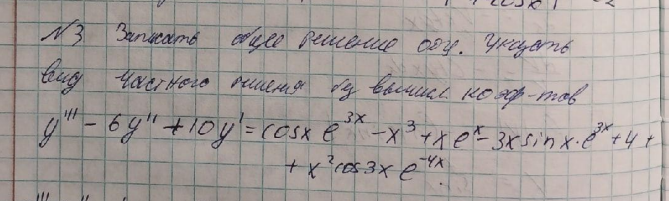 N3 Записать общее решение оду. Указать
вид частного решения без вычисл. коэф-тов
y''' - 6y'' + 10y' = cosx e^{3x} - x^3 + x e^x - 3x sin x · e^{3x} + 4 +
+ x^2 cos3x e^{-4x}.